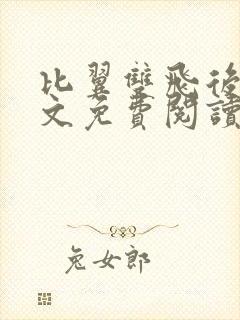 比翼雙飛後
文免費閱讀
兔女郎